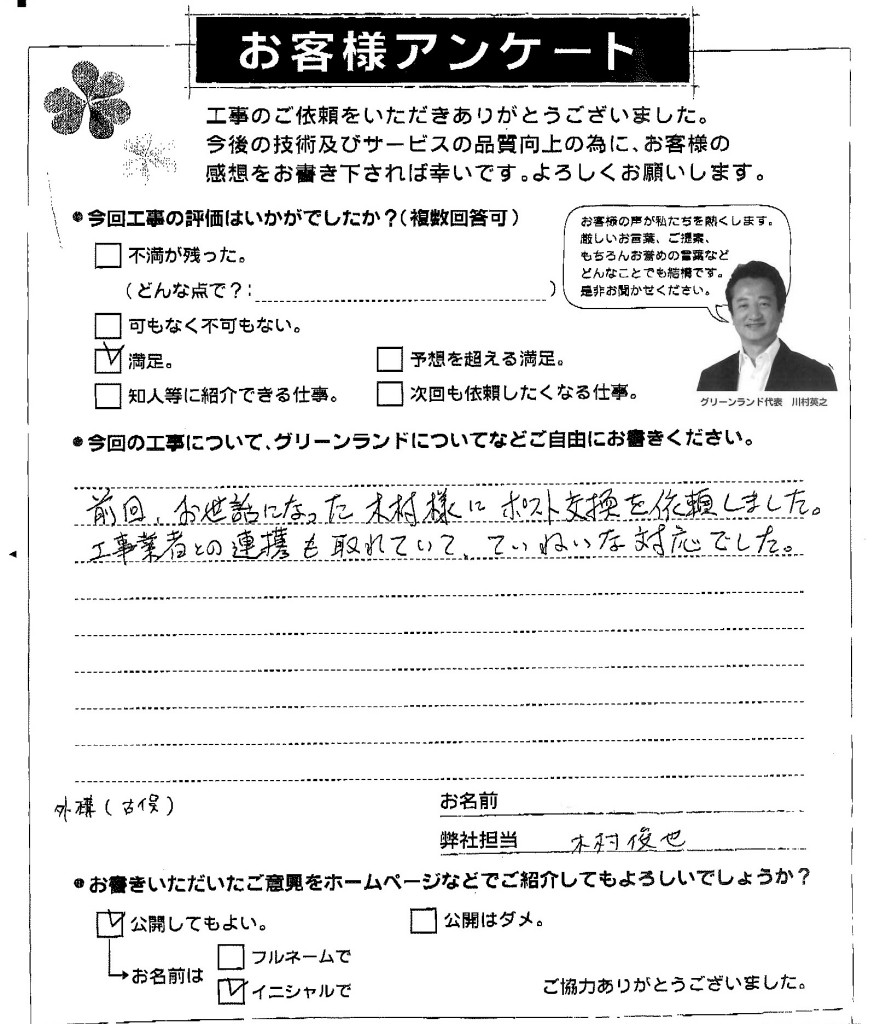 お客様アンケート
工事のご依頼をいただきありがとうございました。
今後の技術及びサービスの品質向上の為に、お客様の
感想をお書き下されば幸いです。よろしくお願いします。
今回工事の評価はいかがでしたか？（複数回答可）
お客様の声が私たちを熱くします。
厳しいお言葉、ご提案、
もちろんお誉めの言葉など
どんなことでも結構です。
是非お聞かせください。
不満が残った。
（どんな点で？：　）
可もなく不可もない。
満足。
予想を超える満足。
知人等に紹介できる仕事。
次回も依頼したくなる仕事。
グリーンランド代表　川村英之
今回の工事について、グリーンランドについてなどご自由にお書きください。
前回、お世話になった木村様にポスト交換を依頼しました。
工事業者との連携も取れていて、ていねいな対応でした。
外構（古俣）
お名前
弊社担当　木村俊也
お書きいただいたご意見をホームページなどでご紹介してもよろしいでしょうか？
公開してもよい。
公開はダメ。
お名前は
フルネームで
イニシャルで
ご協力ありがとうございました。